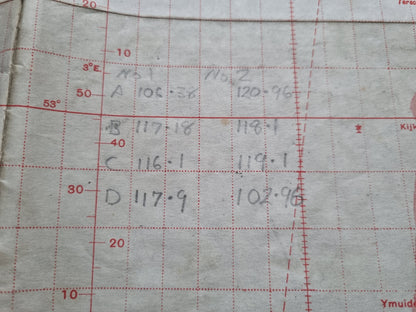 20
Tersc
10
3°E
No 1 No 2
50 A 106.38 120.96
53°
B 117.18 118.1 Kijk
40
C 116.1 119.1
30 D 117.9 102.96
20
10
Ymuide